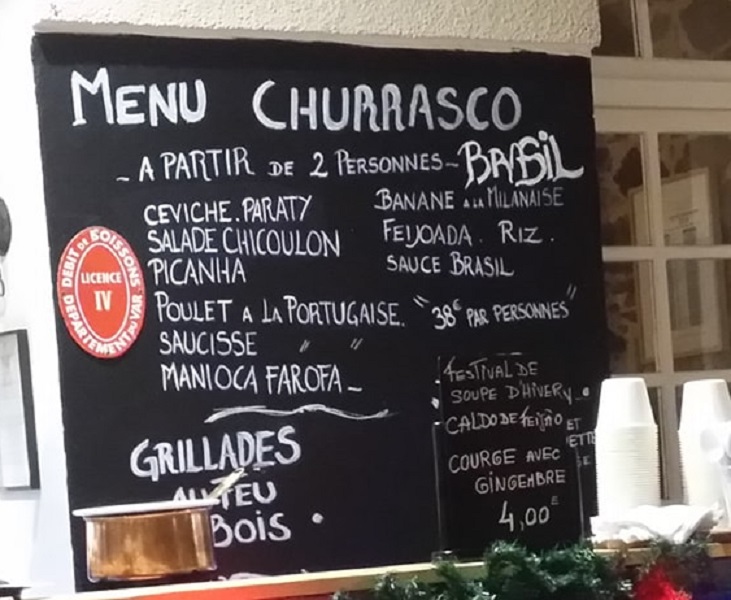 MENU CHURRASCO
- A PARTIR DE 2 PERSONNES - BRASIL
CEVICHE. PARATY
SALADE CHICOULON
PICANHA
POULET A LA PORTUGAISE.
SAUCISSE " "
MANIOCA FAROFA -
BANANE A LA MILANAISE
FEIJOADA. RIZ.
SAUCE BRASIL
"38€ PAR PERSONNES"
DEBIT DE BOISSONS
LICENCE
IV
DEPARTEMENT DU VAR
GRILLADES
AU FEU
BOIS.
FESTIVAL DE
SOUPE D'HIVER
CALDO DE FEIJÃO ET
COURGE AVEC
GINGEMBRE
4,00€